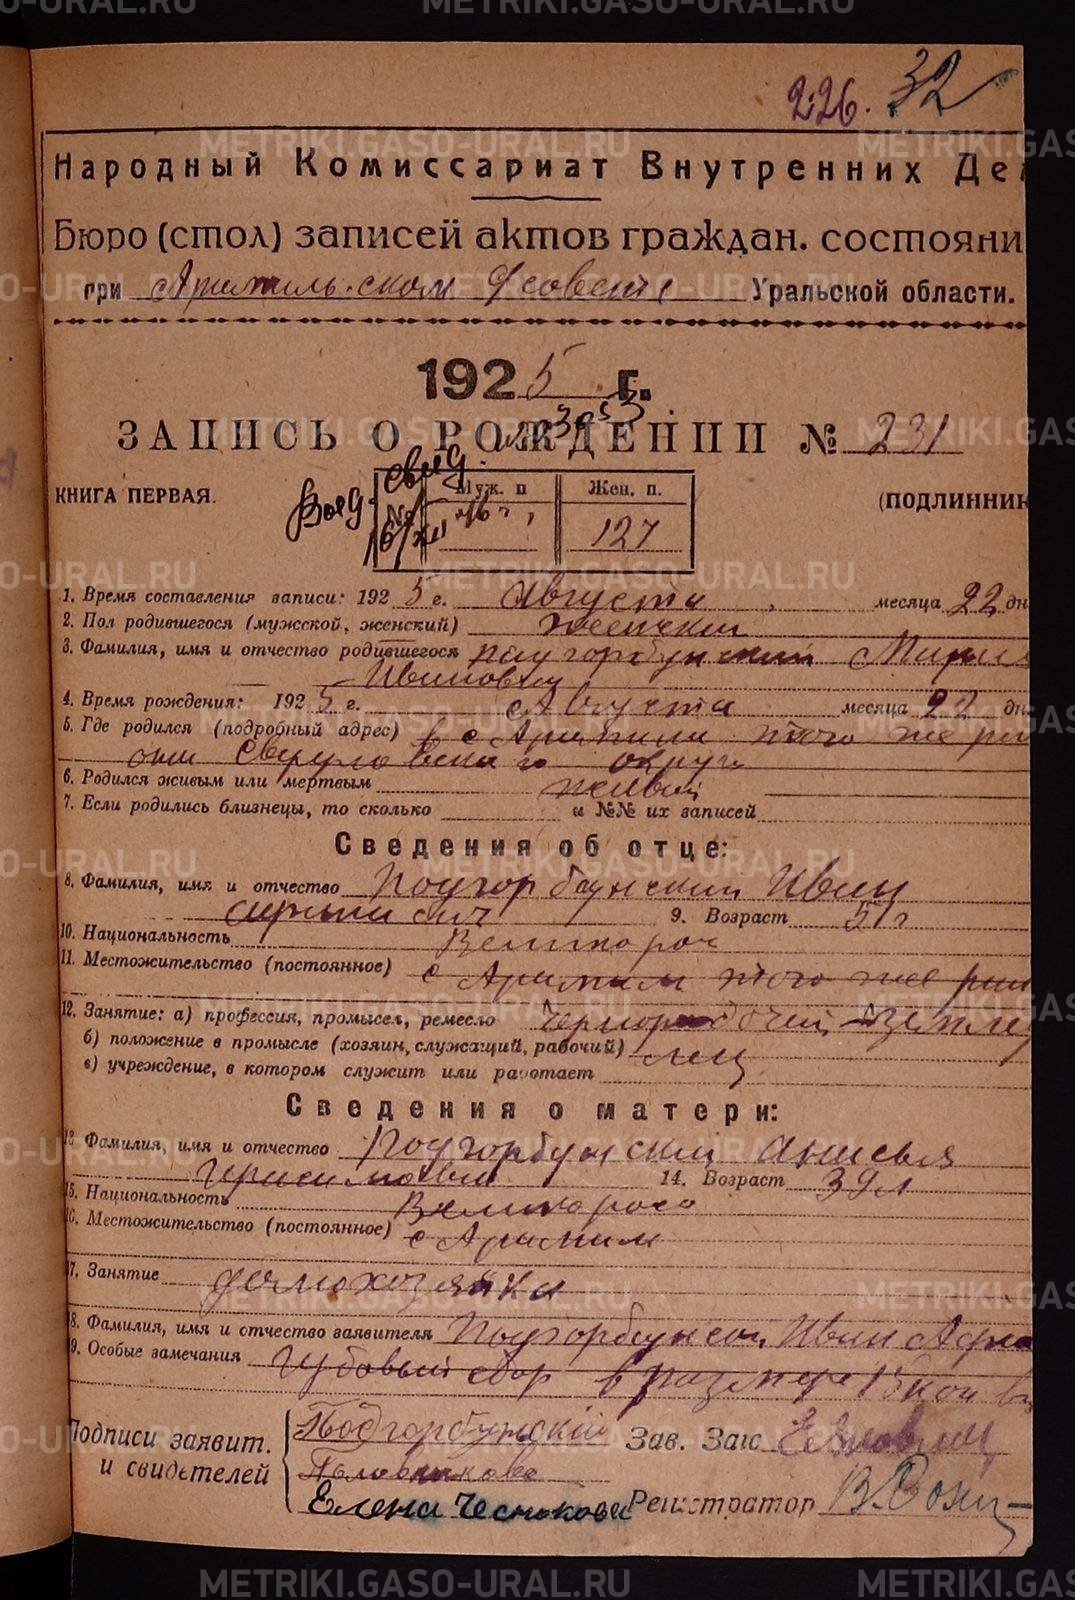 226. 32
Народный Комиссариат Внутренних Дел
Бюро (стол) записей актов граждан. состояни
при Арамильском Уральской области.
1925 г.
ЗАПИСЬ О РОЖДЕНИИ № 231
КНИГА ПЕРВАЯ. (ПОДЛИННИК
№ Муж. п Жен. п.
127
1. Время составления записи: 1925 г. Августа месяца 22 дн
2. Пол родившегося (мужской, женский) женский
3. Фамилия, имя и отчество родившегося Подгорбунский Мария
Ивановна
4. Время рождения: 1925 г. Августа месяца 22 дн
5. Где родился (подробный адрес) в с Арамили того же рай
она Свердловского округа
6. Родился живым или мертвым живой
7. Если родились близнецы, то сколько и №№ их записей
Сведения об отце:
8. Фамилия, имя и отчество Подгорбунский Иван
9. Возраст 51 г
10. Национальность Великорос
11. Местожительство (постоянное) с Арамили того же рай
12. Занятие: а) профессия, промысел, ремесло Чернорабочий земле
б) положение в промысле (хозяин, служащий, рабочий)
в) учреждение, в котором служит или работает
Сведения о матери:
13. Фамилия, имя и отчество Подгорбунский Анисья
Герасимовна 14. Возраст 39 л
15. Национальность Великоросс
16. Местожительство (постоянное) с Арамили
17. Занятие домохозяйка
18. Фамилия, имя и отчество заявителя Подгорбунский Иван
19. Особые замечания Гербовый сбор в размере 15 коп
Подписи заявит. Подгорбунский Зав. Загс
и свидетелей
Елена Чеснокова Регистратор
METRIKI.GASO-URAL.RU